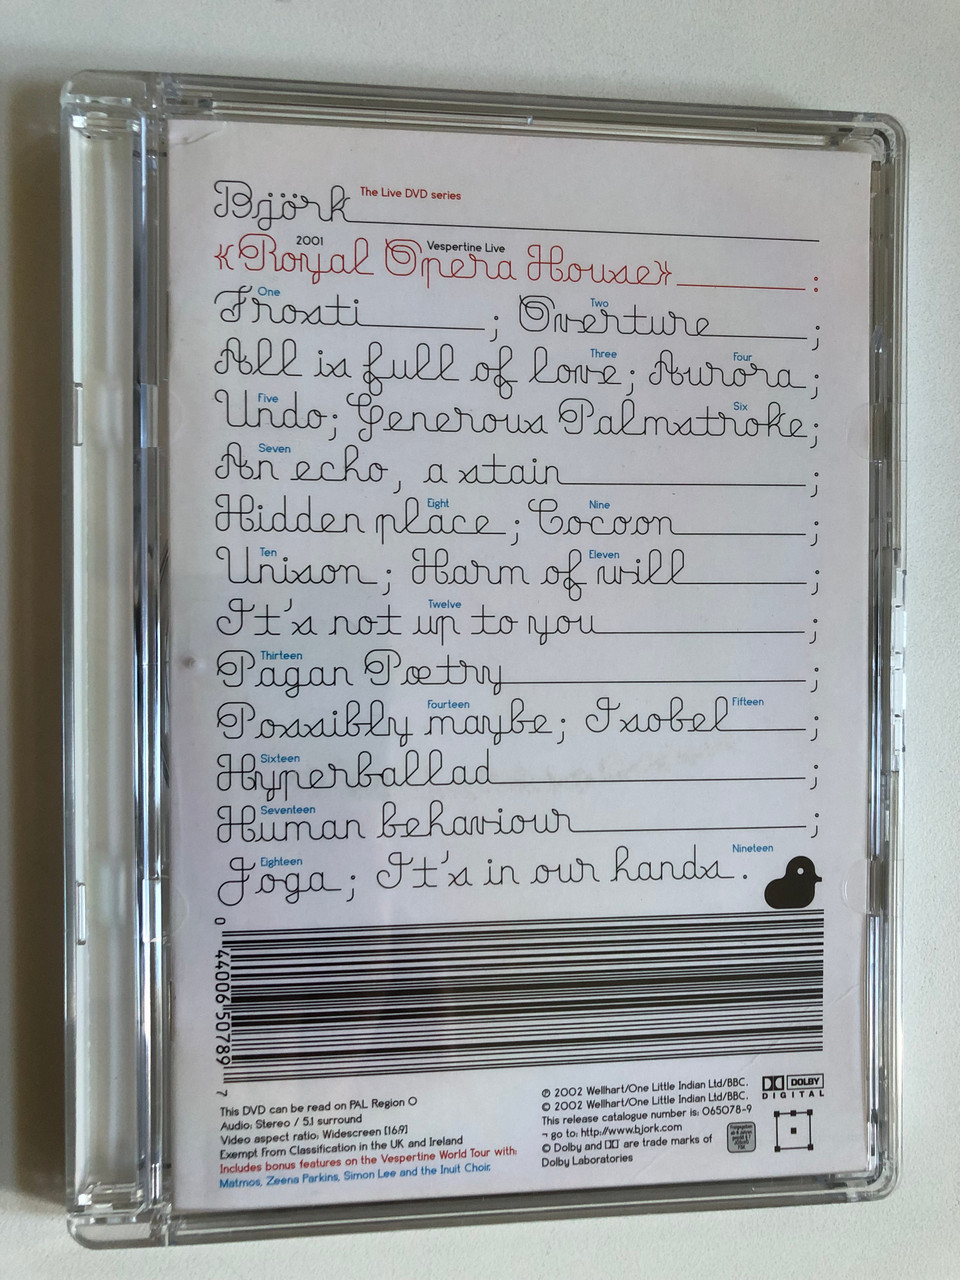 Björk The Live DVD series
2001 Vespertine Live
«Royal Opera House» :
One Two
Frosti ; Overture ;
Three Four
All is full of love; Aurora;
Five Six
Undo; Generous Palmstroke;
Seven
An echo, a stain ;
Eight Nine
Hidden place; Cocoon ;
Ten Eleven
Unison; Harm of will ;
Twelve
It's not up to you ;
Thirteen
Pagan Poetry ;
Fourteen Fifteen
Possibly maybe; Isobel ;
Sixteen
Hyperballad ;
Seventeen
Human behaviour ;
Eighteen Nineteen
Joga; It's in our hands.
0 44006 50789 7
This DVD can be read on PAL Region 0
Audio: Stereo / 5.1 surround
Video aspect ratio: Widescreen [16:9]
Exempt From Classification in the UK and Ireland
Includes bonus features on the Vespertine World Tour with:
Matmos, Zeena Parkins, Simon Lee and the Inuit Choir.
℗ 2002 Wellhart/One Little Indian Ltd/BBC.
© 2002 Wellhart/One Little Indian Ltd/BBC.
This release catalogue number is: 065078-9
¬ go to: http://www.bjork.com
© Dolby and DD are trade marks of
Dolby Laboratories
DOLBY
DIGITAL